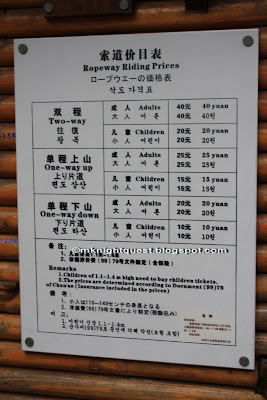 索道价目表
Ropeway Riding Prices
ロープウエーの価格表
삭도 가격표
双程
Two-way
往復
왕복
成人 Adults 40元 40 yuan
大人 어른 40元 40원
儿童 Children 20元 20 yuan
小人 어린이 20元 20원
单程上山
One-way up
上り片道
편도 상산
成人 Adults 25元 25 yuan
大人 어른 25元 25원
儿童 Children 15元 15 yuan
小人 어린이 15元 15원
单程下山
One-way down
下り片道
편도 하산
成人 Adults 20元 20 yuan
大人 어른 20元 20원
儿童 Children 10元 10 yuan
小人 어린이 10元 10원
备注:
©mknightquest.blogspot.com
Remarks
1.Children of 1.1-1.4 m high need to buy children tickets.
2.The prices are determined according to Document (99)79
(Insurance included in the prices)
備考
1、小人は110-140センチの身長となる
비고: